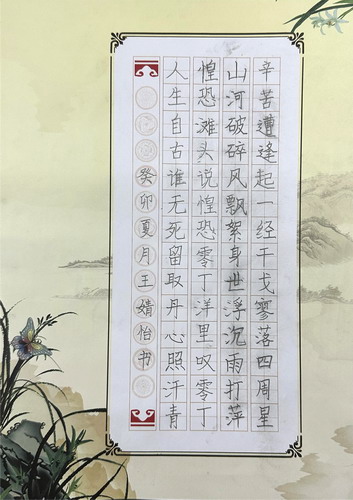 辛苦遭逢起一经干戈寥落四周里
山河破碎风飘絮身世浮沉雨打萍
惶恐滩头说惶恐零丁洋里叹零丁
人生自古谁无死留取丹心照汗青
癸卯夏月王婧怡书